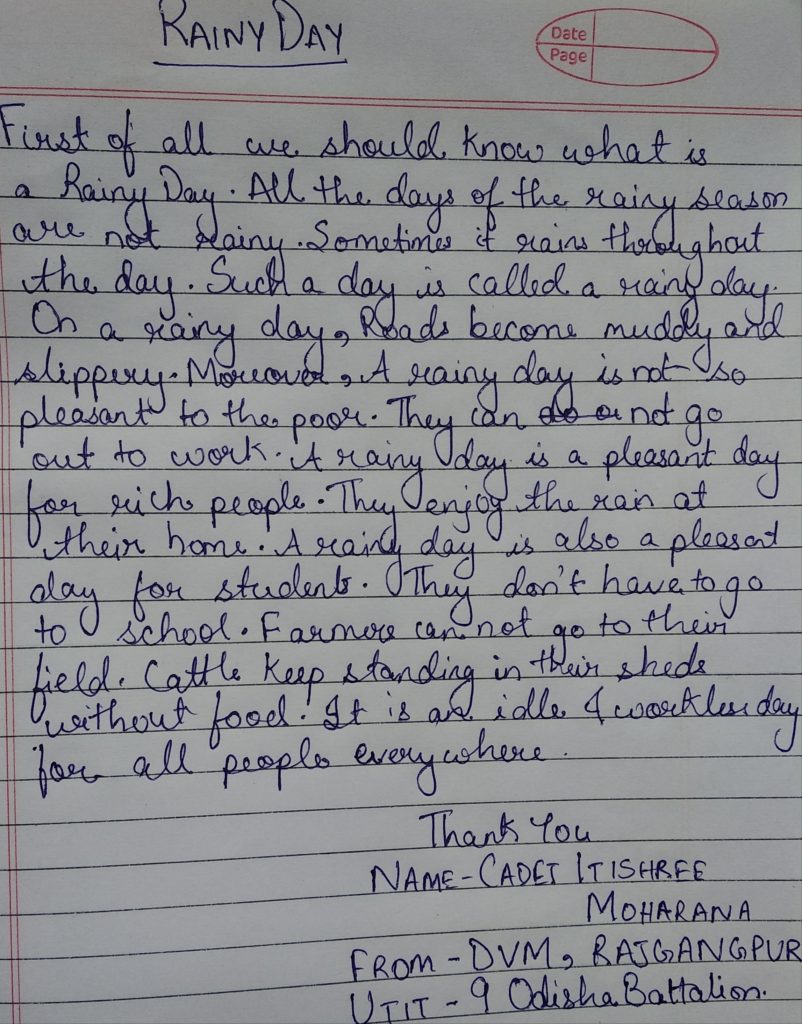 RAINY DAY
Date
Page
First of all we should know what is
a Rainy Day. All the days of the rainy season
are not rainy. Sometimes it rains throughout
the day. Such a day is called a rainy day.
On a rainy day, Roads become muddy and
slippery. Moreover, A rainy day is not so
pleasant to the poor. They can not go
out to work. A rainy day is a pleasant day
for rich people. They enjoy the rain at
their home. A rainy day is also a pleasant
day for students. They don't have to go
to school. Farmers can not go to their
field. Cattle keep standing in their sheds
without food. It is an idle & workless day
for all people everywhere.
Thank You
NAME - CADET ITISHREE
MOHARANA
FROM - DVM, RAJGANGPUR
UTIT - 9 Odisha Battalion.